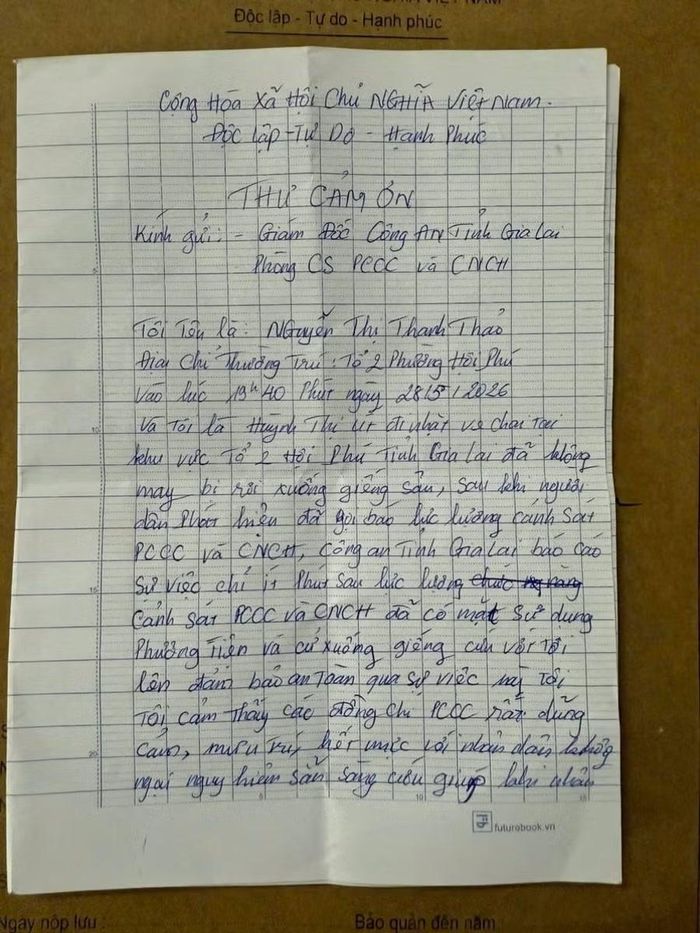 NGHĨA VIỆT NAM
Độc lập - Tự do - Hạnh phúc
Cộng Hòa Xã Hội Chủ NGHĨA Việt Nam.
Độc lập - Tự Do - Hạnh Phúc
THƯ CẢM ƠN
Kính gửi: - Giám Đốc Công AN Tỉnh Gia Lai
Phòng CS PCCC và CNCH
Tôi Tên là: NGuyễn Thị Thanh Thảo
Địa Chỉ Thường Trú: Tổ 2 Phường Hội Phú
Vào lúc 19h 40 Phút ngày 28/5/2026
Và Tôi là Huỳnh Thị út đi nhặt ve chai tại
khu vực Tổ 2 Hội Phú Tỉnh Gia Lai đã không
may bị rơi xuống giếng sâu, sau khi người
dân Phát hiện đã gọi báo lực lượng cảnh sát
PCCC và CNCH, Công an Tỉnh Gia Lai báo cáo
sự việc chỉ ít Phút sau lực lượng
Cảnh sát PCCC và CNCH đã có mặt sử dụng
Phương Tiện và cử xuống giếng cứu với Tôi
lên đảm bảo an Toàn qua sự việc này Tôi
Tôi cảm Thấy các đồng chí PCCC rất dũng
cảm, mưu trí, hết mực với nhân dân không
ngại nguy hiểm sẵn sàng cứu giúp khi nhân
5
10
15
20
5
10
15
futurebook.vn
Ngày nộp lưu :
Bảo quản đến năm